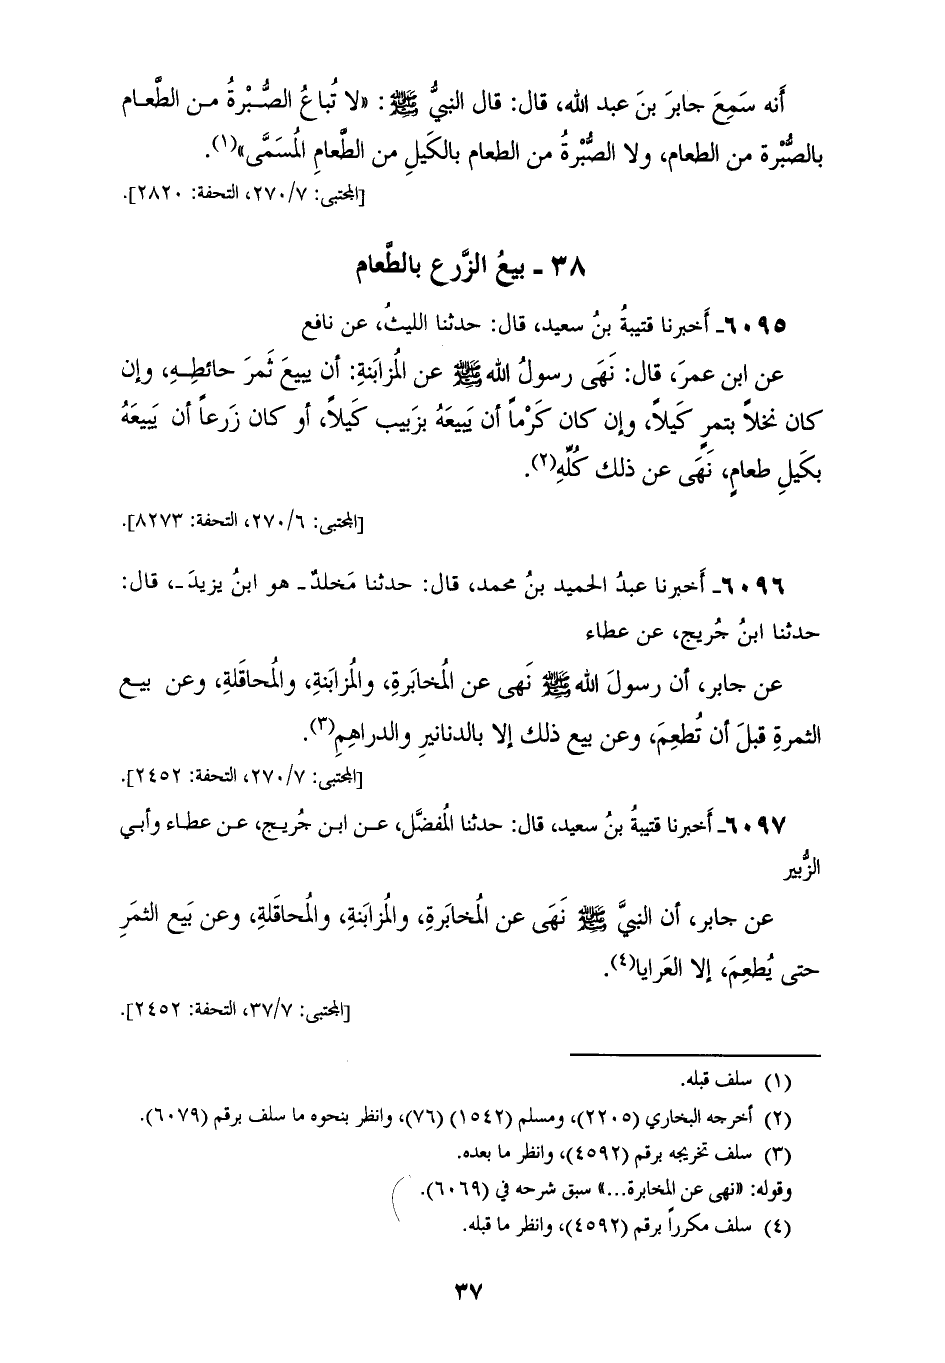 أَنه سَمِعَ جابرَ بنَ عبد الله، قال: قال النبيُّ ﷺ: «لا تُباعُ الصُّبْرةُ من الطَّعام
بالصُّبْرة من الطعام، ولا الصُّبْرةُ من الطعام بالكَيلِ من الطَّعامِ المُسَمَّى»(١).
[المجتبى: ٢٧٠/٧، التحفة: ٢٨٢٠].
٣٨ - بيعُ الزَّرع بالطَّعام
٦٠٩٥ـ أَخبرنا قتيبةُ بنُ سعيد، قال: حدثنا الليثُ، عن نافع
عن ابن عمرَ، قال: نَهَى رسولُ الله ﷺ عن المُزابَنةِ: أن يبيعَ ثَمرَ حائطِهِ، وإن
كان نخلاً بتمرٍ كَيلاً، وإن كان كَرْماً أن يَبيعَهُ بزَبيب كَيلاً، أو كان زَرعاً أن يَبيعَهُ
بكَيلِ طعامٍ، نَهَى عن ذلك كُلِّهِ(٢).
[المجتبى: ٢٧٠/٦، التحفة: ٨٢٧٣].
٦٠٩٦ـ أَخبرنا عبدُ الحميد بنُ محمد، قال: حدثنا مَخلدٌ ـ هو ابنُ يزيدَ ـ، قال:
حدثنا ابنُ جُريج، عن عطاء
عن جابر، أن رسولَ الله ﷺ نَهى عن المُخابَرةِ، والمُزابَنةِ، والمُحاقَلةِ، وعن بيع
الثمرةِ قبلَ أن تُطعِمَ، وعن بيع ذلك إلا بالدنانيرِ والدراهِمِ(٣).
[المجتبى: ٢٧٠/٧، التحفة: ٢٤٥٢].
٦٠٩٧ـ أَخبرنا قتيبةُ بنُ سعيد، قال: حدثنا المُفضَّل، عن ابن جُريج، عن عطاء وأبي
الزُّبير
عن جابر، أن النبيَّ ﷺ نَهَى عن المُخابَرةِ، والمُزابَنةِ، والمُحاقَلةِ، وعن بَيع الثمَرِ
حتى يُطعِمَ، إلا العَرايا(٤).
[المجتبى: ٣٧/٧، التحفة: ٢٤٥٢].
(١) سلف قبله.
(٢) أخرجه البخاري (٢٢٠٥)، ومسلم (١٥٤٢) (٧٦)، وانظر بنحوه ما سلف برقم (٦٠٧٩).
(٣) سلف تخريجه برقم (٤٥٩٢)، وانظر ما بعده.
وقوله: «نهى عن المخابرة...» سبق شرحه في (٦٠٦٩).
(٤) سلف مكرراً برقم (٤٥٩٢)، وانظر ما قبله.
٣٧